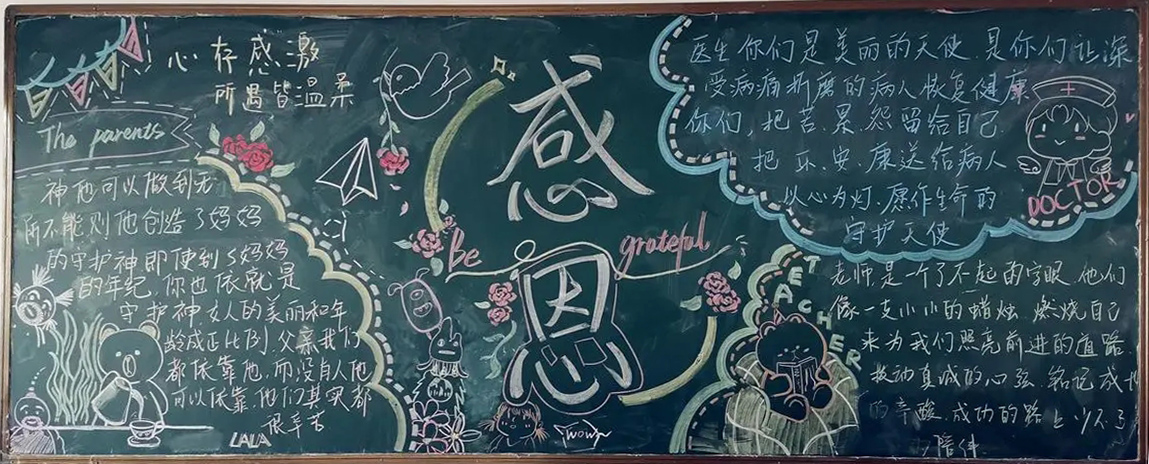 心存感激
所遇皆温柔
The parents
神他可以做到无
所不能则他创造了妈妈
的守护神即使到了妈妈
的年纪,你也依就是
守护神女人的美丽和年
龄成正比例,父亲我们
都依靠他,而没有人他
可以依靠,他们其实都
很辛苦
LALA
感
恩
Be grateful
wow
医生你们是美丽的天使,是你们让深
受病痛折磨的病人恢复健康
你们,把苦、累、怨留给自己
把乐、安、康送给病人
以心为灯,愿作生命的
守护天使
DOCTOR
TEACHER
老师是一个了不起的字眼,他们
像一支小小的蜡烛,燃烧自己
来为我们照亮前进的道路
拨动真诚的心弦,铭记成
的辛酸,成功的路上少不了
陪伴